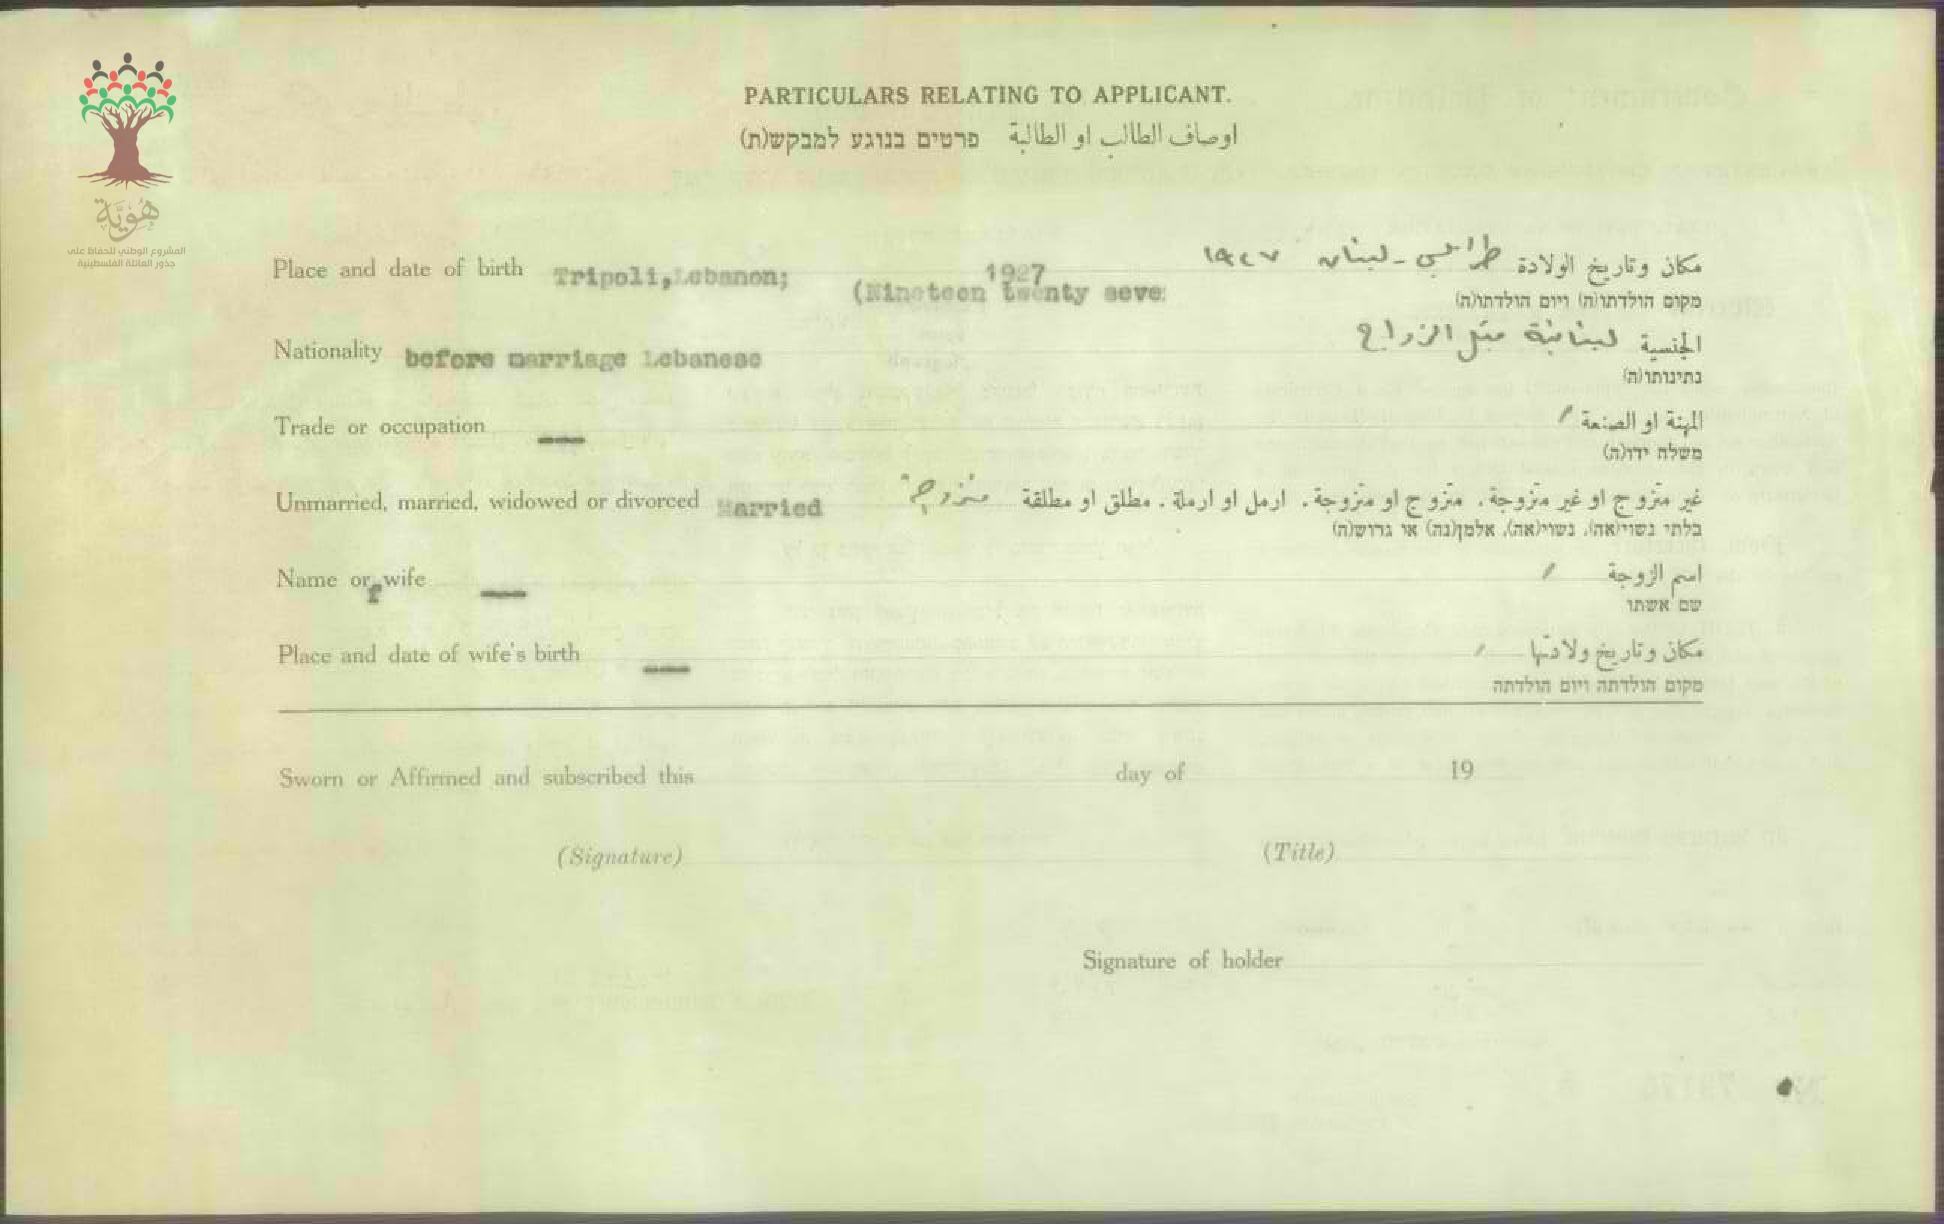 PARTICULARS RELATING TO APPLICANT.
اوصاف الطالب او الطالبة פרטים בנוגע למבקש(ת)
هُوِيَّة
المشروع الوطني للحفاظ على
جذور العائلة الفلسطينية
Place and date of birth Tripoli, Lebanon; 1927 طرابلس - لبنان ١٩٢٧ مكان وتاريخ الولادة
(Nineteen twenty seve
מקום הולדתו(ה) ויום הולדתו(ה)
Nationality before marriage Lebanese لبنانية قبل الزواج الجنسية
נתינותו(ה)
Trade or occupation --- / المهنة او الصنعة
משלח ידו(ה)
Unmarried, married, widowed or divorced Married متزوجة غير متزوج او غير متزوجة. متزوج او متزوجة. ارمل او ارملة. مطلق او مطلقة
בלתי נשוי(אה), נשוי(אה), אלמן(נה) או גרוש(ה)
Name or wife --- / اسم الزوجة
f
שם אשתו
Place and date of wife's birth --- / مكان وتاريخ ولادتها
מקום הולדתה ויום הולדתה
Sworn or Affirmed and subscribed this day of 19
(Signature) (Title)
Signature of holder